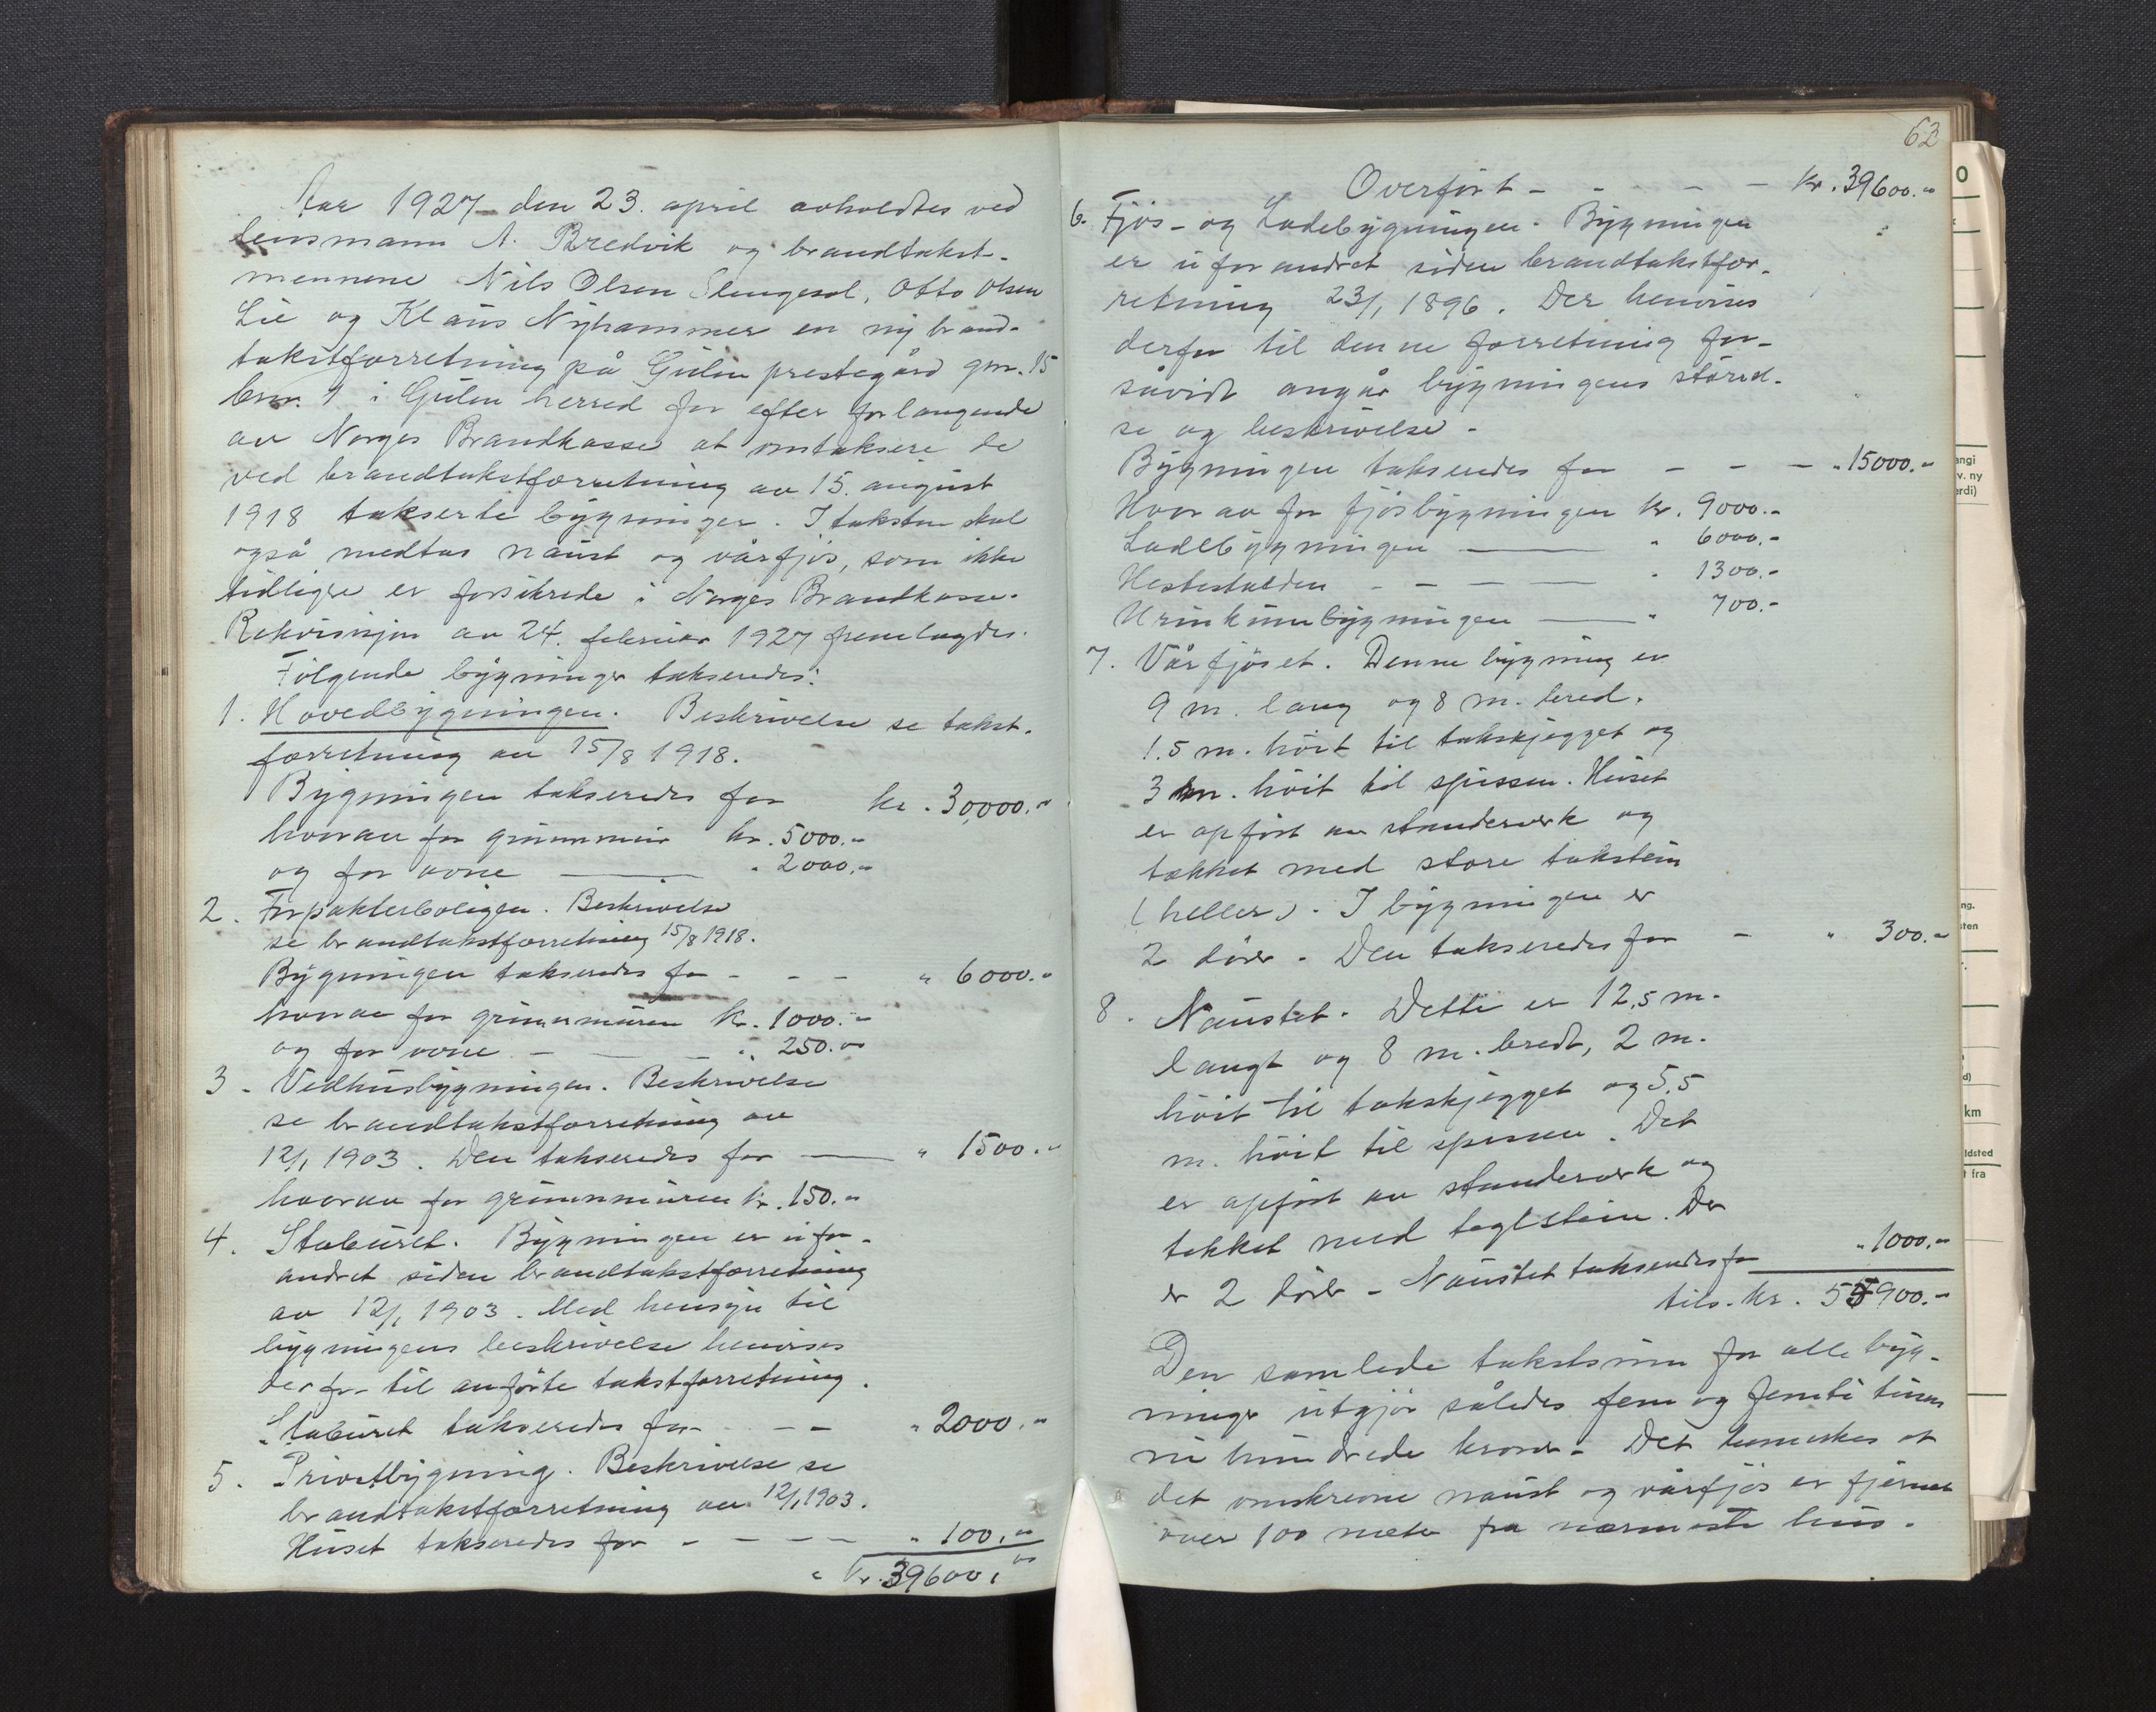 Aar 1927 den 23. april avholdtes ved
lensmann A. Bredvik og brandtakst-
mennene Nils Olsen Slengesol, Otto Olsen
Lie og Klaus Nyhammer en ny brand-
takstforretning på Gulen prestegård gnr. 15
brnr. 1 i Gulen herred for efter forlangende
av Norges Brandkasse at omtaksere de
ved brandtakstforretning av 15. august
1918 takserte bygninger. I taksten skal
også medtas naust og vårfjøs, som ikke
tidligre er forsikrede i Norges Brandkasse.
Rekvisisjon av 24. februar 1927 fremlagdes.
Følgende bygninger takseredes:
1. Hovedbygningen. Beskrivelse se takst-
forretning av 15/8 1918.
Bygningen takseredes for kr. 30,000.-
hvorav for grunnmur kr. 5000.-
og for ovne — " 2000.-
2. Forpakterboligen. Beskrivelse
se brandtakstforretning 15/8 1918.
Bygningen takseredes for - - - " 6000.-
hvorav for grunnmuren kr. 1000.-
og for ovne - — - " 250.-
3. Vedhusbygningen. Beskrivelse
se brandtakstforretning av
12/1 1903. Den takseredes for — " 1500.-
hvorav for grunnmuren kr. 150.-
4. Staburet. Bygningen er ufor-
andret siden brandtakstforretning
av 12/1 1903. Med hensyn til
bygningens beskrivelse henvises
derfor til anførte takstforretning.
Staburet takseredes for - - - " 2000.-
5. Privetbygning. Beskrivelse se
brandtakstforretning av 12/1 1903.
Huset takseredes for - - - — " 100.-
Kr. 39600.-
63
Overført - - - - — kr. 39600.-
6. Fjøs- og Ladebygningen. Bygningen
er uforandret siden brandtakstfor-
retning 23/1 1896. Der henvises
derfor til denne forretning for-
såvidt angår bygningens størrel-
se og beskrivelse -
Bygningen takseredes for - - — " 15000.-
Hvorav for fjøsbygningen kr. 9000.-
Ladebygningen — " 6000.-
Hestestalden - — - — " 1300.-
Urinkumbygningen — " 700.-
7. Vårfjøset. Denne bygning er
9 m. lang og 8 m. bred.
1.5 m. høit til takskjegget og
3 m. høit til spissen. Huset
er opført av standerverk og
tækket med store takstein
(heller). I bygningen er
2 dører - Den takseredes for - " 300.-
8. Naustet. Dette er 12,5 m.
langt og 8 m. bredt, 2 m.
høit til takskjegget og 5.5
m. høit til spissen. Det
er opført av standerverk og
tekket med teglstein. Der
er 2 dører - Naustet takseredes for " 1000.-
tils. kr. 55900.-
Den samlede takstsum for alle byg-
ninger utgjør således fem og femti tusen
ni hundrede kroner - Det bemerkes at
det omskrevne naust og vårfjøs er fjernet
over 100 meter fra nærmeste hus.
0
angi
v. ny
erdi)
ng.
sten
d)
km
ldsted
t fra